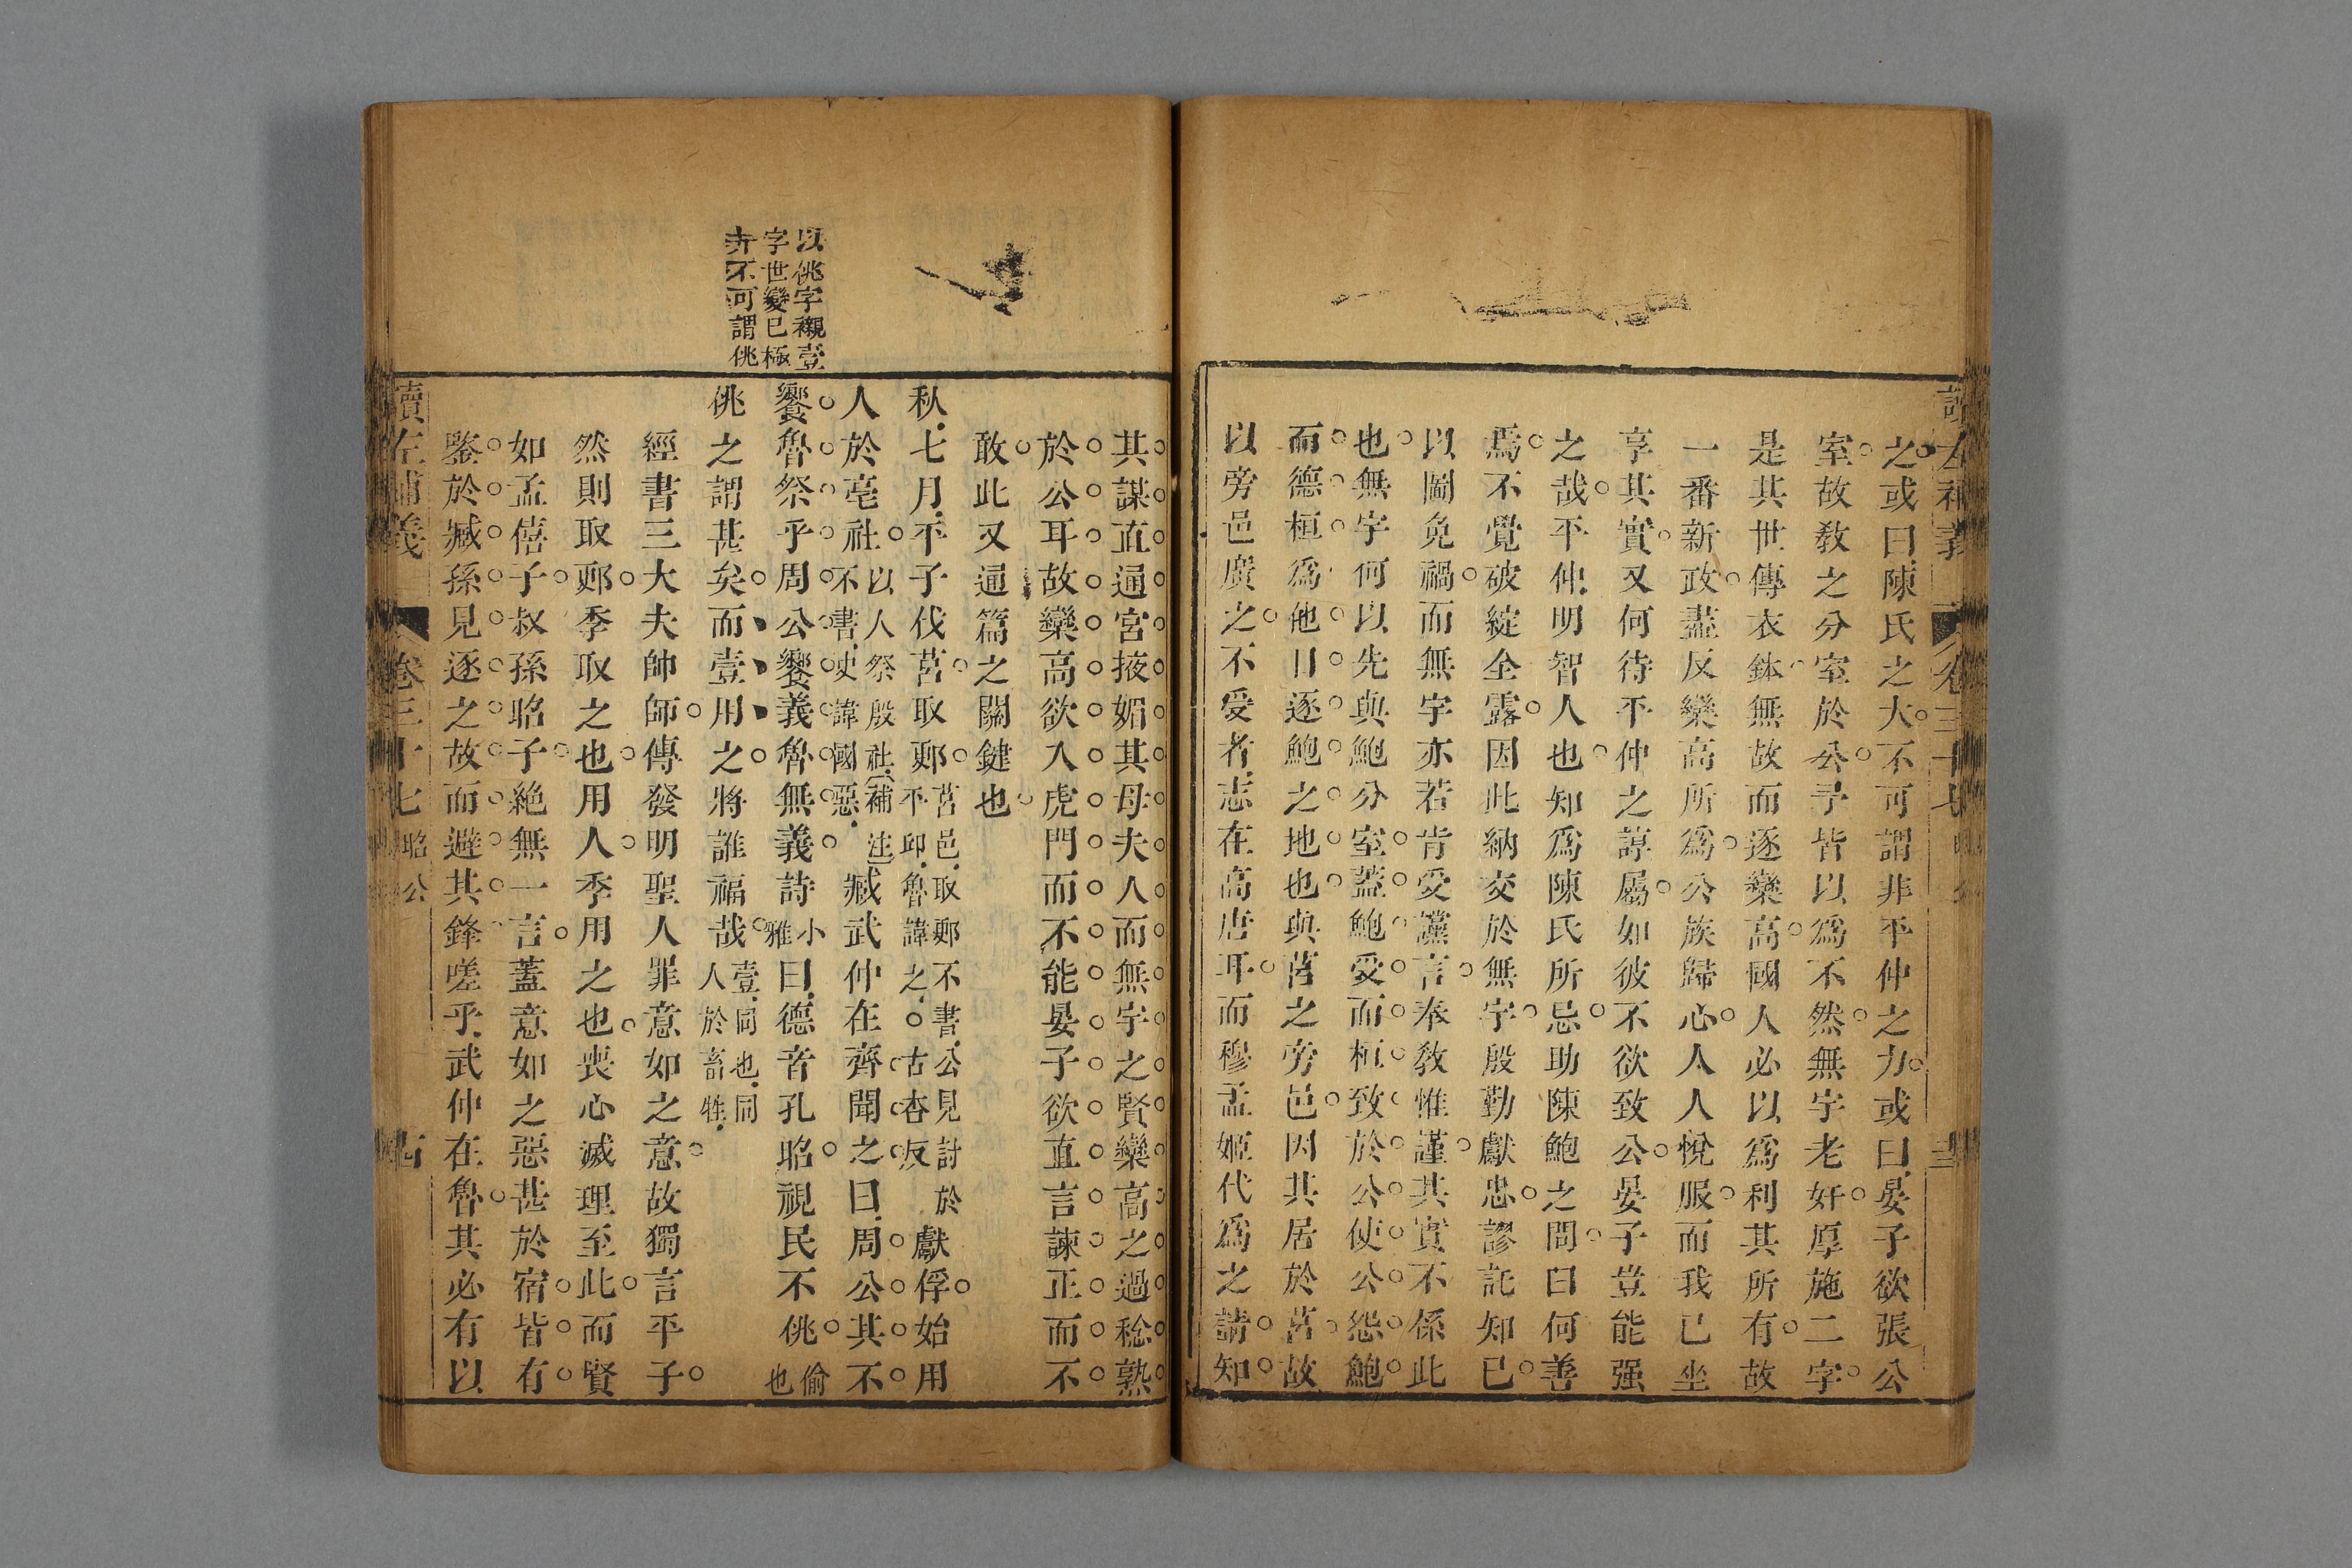 讀左補義 卷三十七 昭公
之或曰陳氏之大不可謂非平仲之力或曰晏子欲張公
室故教之分室於公子皆以爲不然無宇老奸厚施二字
是其世傳衣鉢無故而逐欒高國人必以爲利其所有故
一番新政盡反欒高所爲公族歸心人人悅服而我已坐
享其實又何待平仲之諄屬如彼不欲致公晏子豈能强
之哉平仲明智人也知爲陳氏所忌助陳鮑之問曰何善
焉不覺破綻全露因此納交於無宇殷勤獻忠謬託知已
以圖免禍而無宇亦若肯受讜言奉教惟謹其實不係此
也無宇何以先與鮑分室蓋鮑受而桓致於公使公怨鮑
而德桓爲他日逐鮑之地也與莒之旁邑因其居於莒故
以旁邑廣之不受者志在高唐耳而穆孟姬代爲之請知
其謀直通宮掖媚其母夫人而無宇之賢欒高之過稔熟
於公耳故欒高欲入虎門而不能晏子欲直言諫正而不
敢此又通篇之關鍵也
秋七月平子伐莒取郠莒邑取郠不書公見討於平邱魯諱之古杏反獻俘始用
人於亳社以人祭殷社補注不書史諱國惡臧武仲在齊聞之曰周公其不
饗魯祭乎周公饗義魯無義詩小雅曰德音孔昭視民不佻偷也
佻之謂甚矣而壹用之將誰福哉壹同也同人於畜牲
以佻字襯壹
字世變已極
弁不可謂佻
經書三大夫帥師傳發明聖人罪意如之意故獨言平子
然則取郠季取之也用人季用之也喪心滅理至此而賢
如孟僖子叔孫昭子絕無一言蓋意如之惡甚於宿皆有
鑒於臧孫見逐之故而避其鋒嗟乎武仲在魯其必有以
讀左補義 卷三十七 昭公